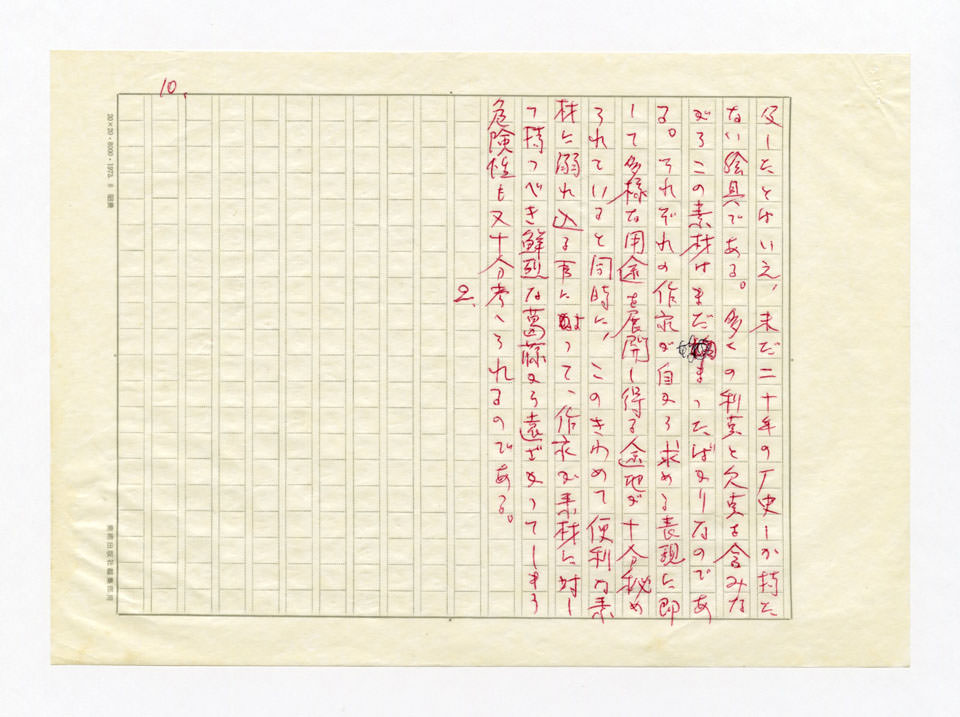 及したとはいえ、未だ二十年の厂史しか持た
ない絵具である。多くの利点と欠点を含みな
がらこの素材はまだ始まったばかりなのであ
る。それぞれの作家が自から求める表現に即
して多様な用途を展開し得る余地が十分秘め
られていると同時に、このきわめて便利な素
材に溺れ込る事に よって、作家が素材に対し
て持つべき鮮烈な葛藤から遠ざかってしまう
危険性も又十分考へられるのである。
2.
10.
20×20・8000・1973. 8